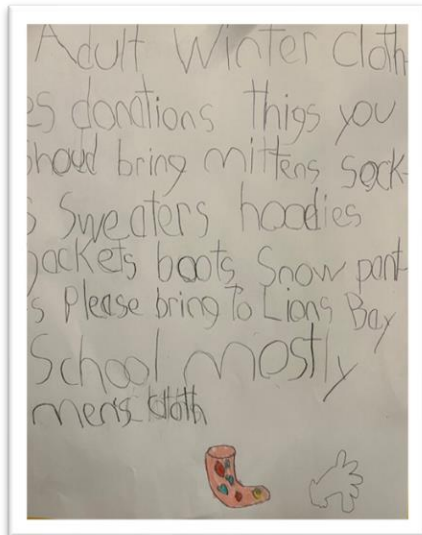 Adult Winter Cloth
es donations thigs you
shoud bring mittens sock-
s Sweaters hoodies
jackets boots Snow pant-
s Please bring To Lions Bay
School mostly
mens cloth